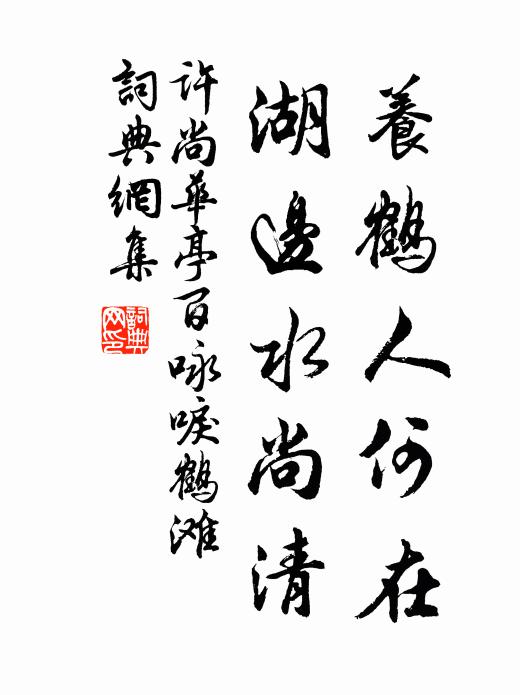 養鶴人何在
湖邊水尚清
许尚華亭百咏唳鶴滩
詞典網集
詞典
网印